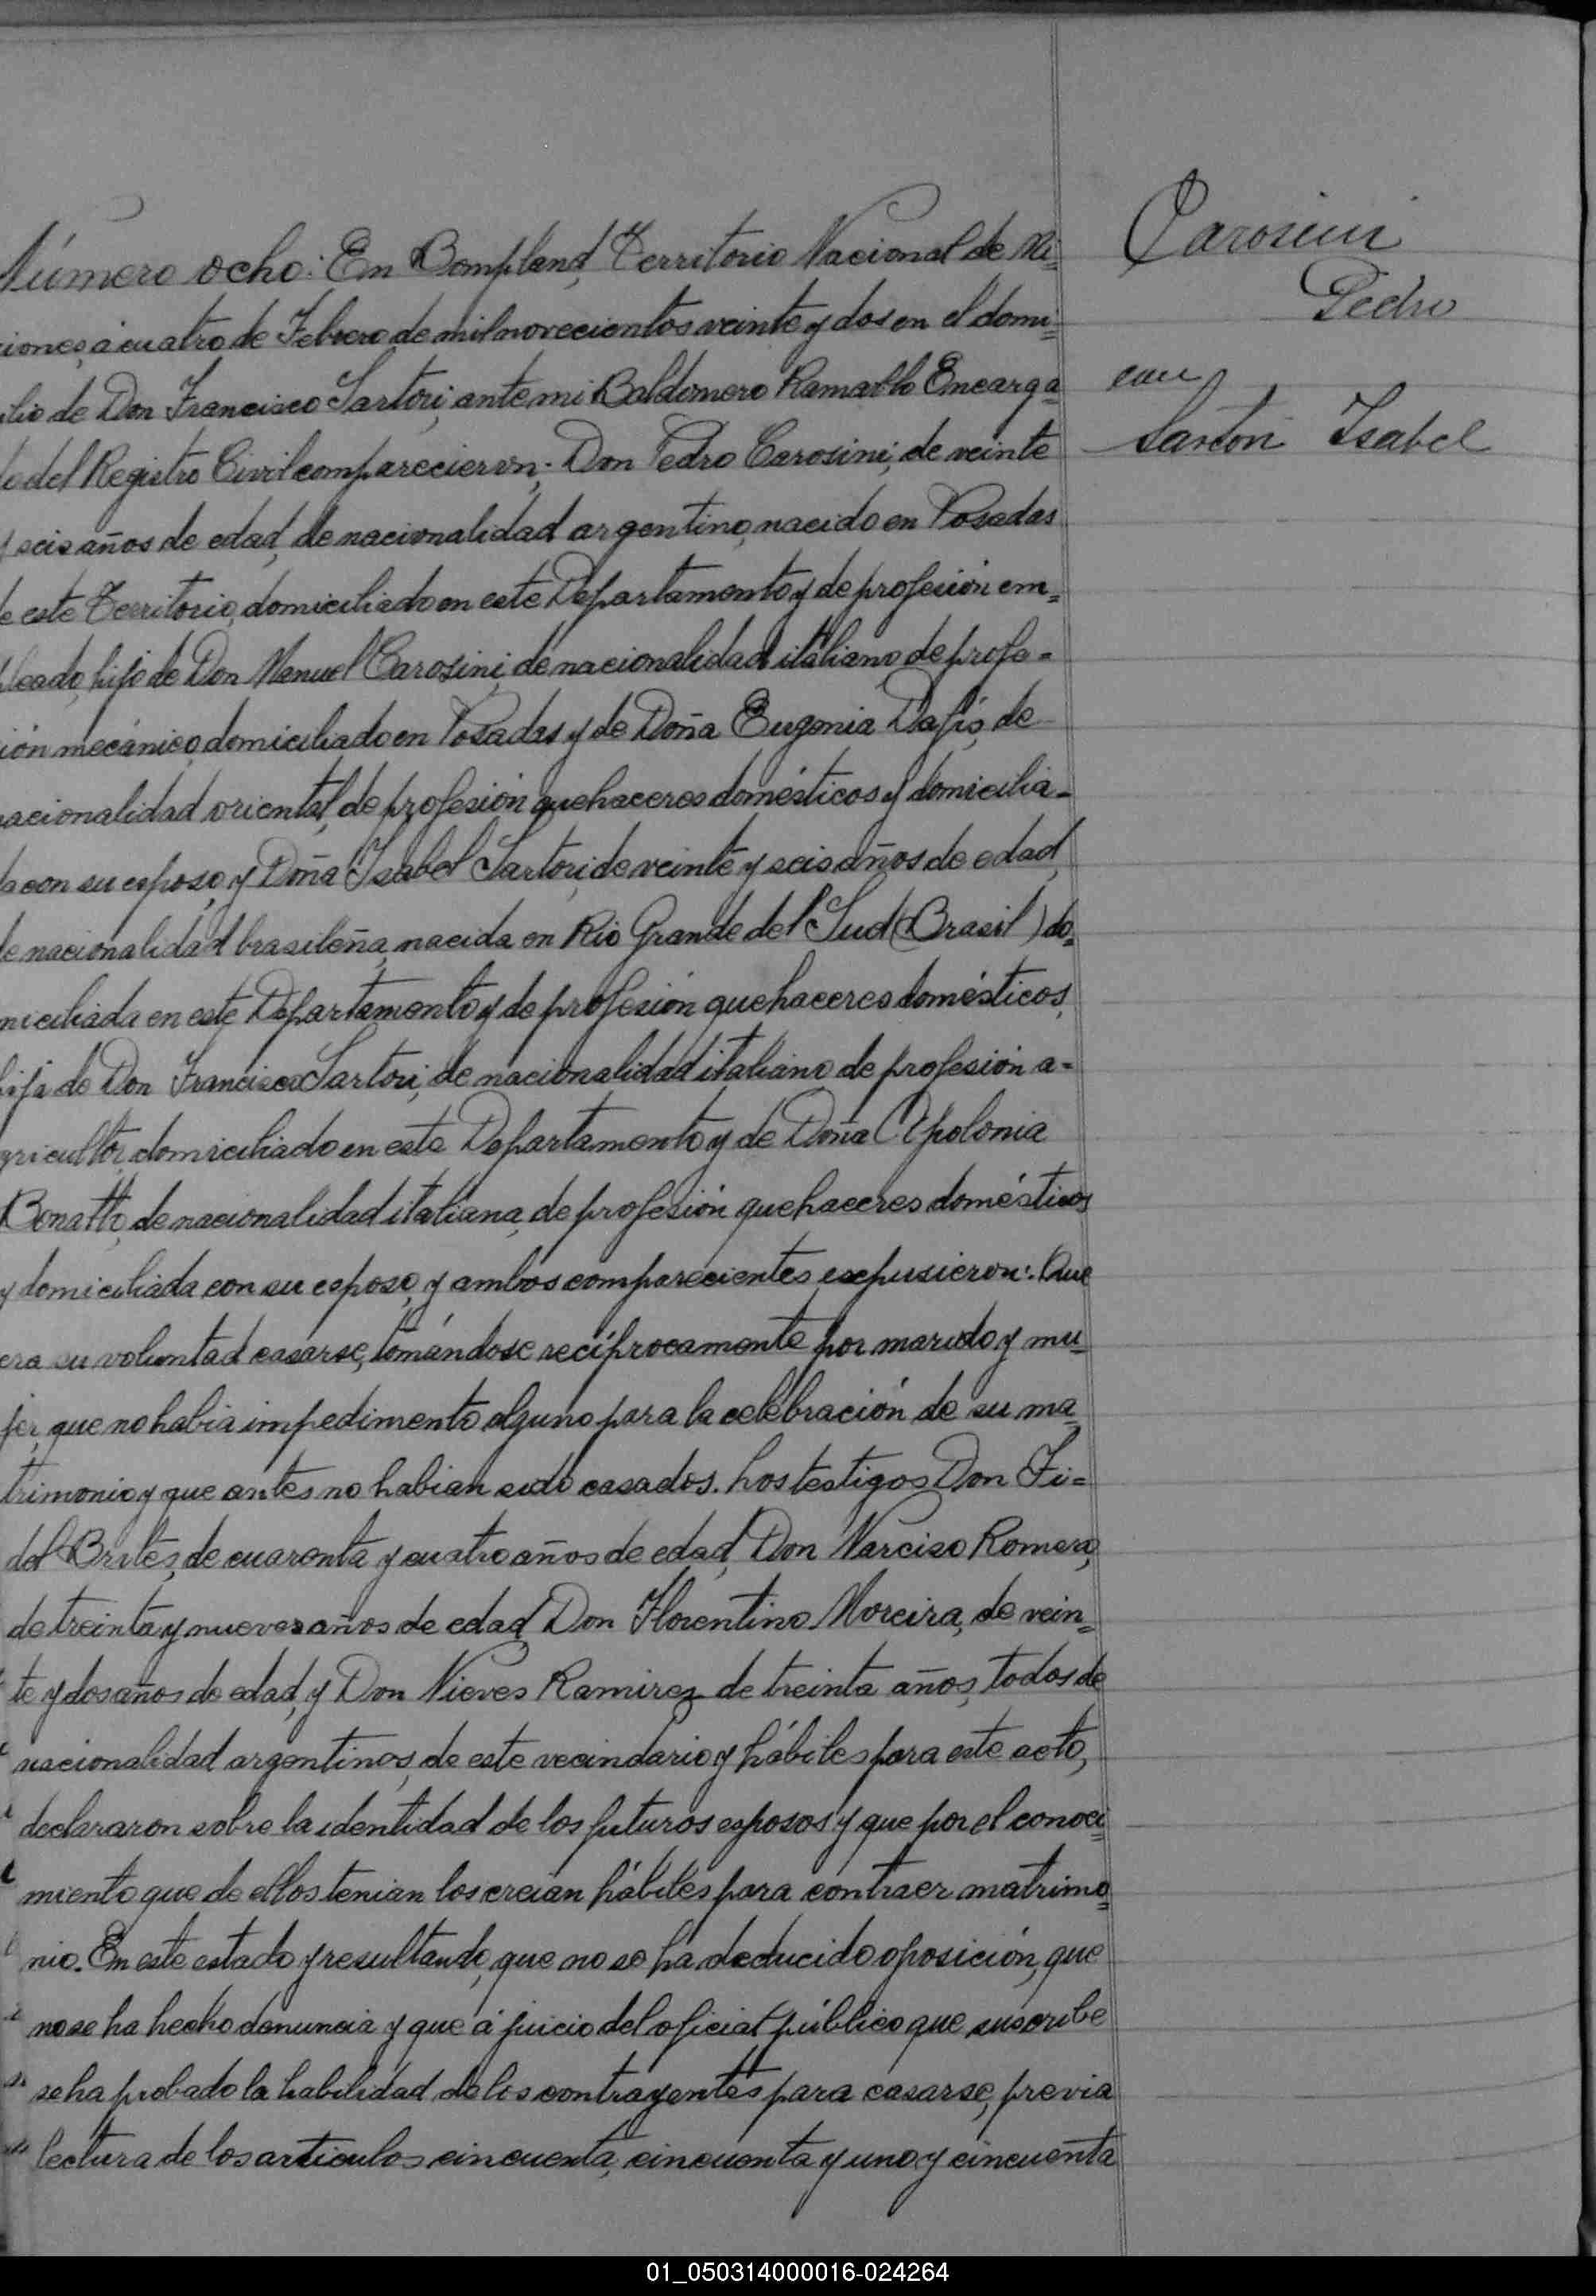 Número ocho: En Bompland, Territorio Nacional de Mi=
ciones, á cuatro de Febrero de mil novecientos veinte y dos en el domi=
ilio de Don Francisco Sartori, ante mi Baldomero Ramallo Encarga=
do del Registro Civil comparecieron: Don Pedro Carosini, de veinte
y seis años de edad, de nacionalidad argentino, nacido en Posadas
de este Territorio, domiciliado en este Departamento y de profesión em=
pleado, hijo de Don Manuel Carosini, de nacionalidad italiano de profe=
ión mecánico, domiciliado en Posadas y de Doña Eugenia de
nacionalidad oriental, de profesión quehaceres domésticos y domicilia=
da con su esposo, y Doña Isabel Sartori, de veinte y seis años de edad,
de nacionalidad brasileña, nacida en Rio Grande del Sud (Brasil) do=
miciliada en este Departamento y de profesión quehaceres domésticos,
hija de Don Francisco Sartori, de nacionalidad italiano, de profesión a=
gricultor, domiciliado en este Departamento y de Doña Apolonia
Bonatto, de nacionalidad italiana, de profesión quehaceres domésticos
y domiciliada con su esposo, y ambos comparecientes expusieron: Que
era su voluntad casarse, tomándose recíprocamente por marido y mu=
jer, que no habia impedimento alguno para la celebración de su ma=
trimonio y que antes no habian sido casados. Los testigos Don Fi=
del Brites, de cuarenta y cuatro años de edad, Don Narciso Romero,
de treinta y nueve años de edad, Don Florentino Moreira, de vein=
te y dos años de edad, y Don Nieves Ramirez de treinta años, todos de
nacionalidad argentinos, de este vecindario y hábiles para este acto,
declararon sobre la identidad de los futuros esposos y que por el conoci=
miento que de ellos tenian los creian hábiles para contraer matrimo=
nio. En este estado y resultando, que no se ha deducido oposición, que
no se ha hecho denuncia y que á juicio del oficial público que suscribe
se ha probado la habilidad de los contrayentes para casarse, previa
lectura de los articulos cincuenta, cincuenta y uno y cincuenta
Carosini
Pedro
con
Sartori Isabel
01_050314000016-024264